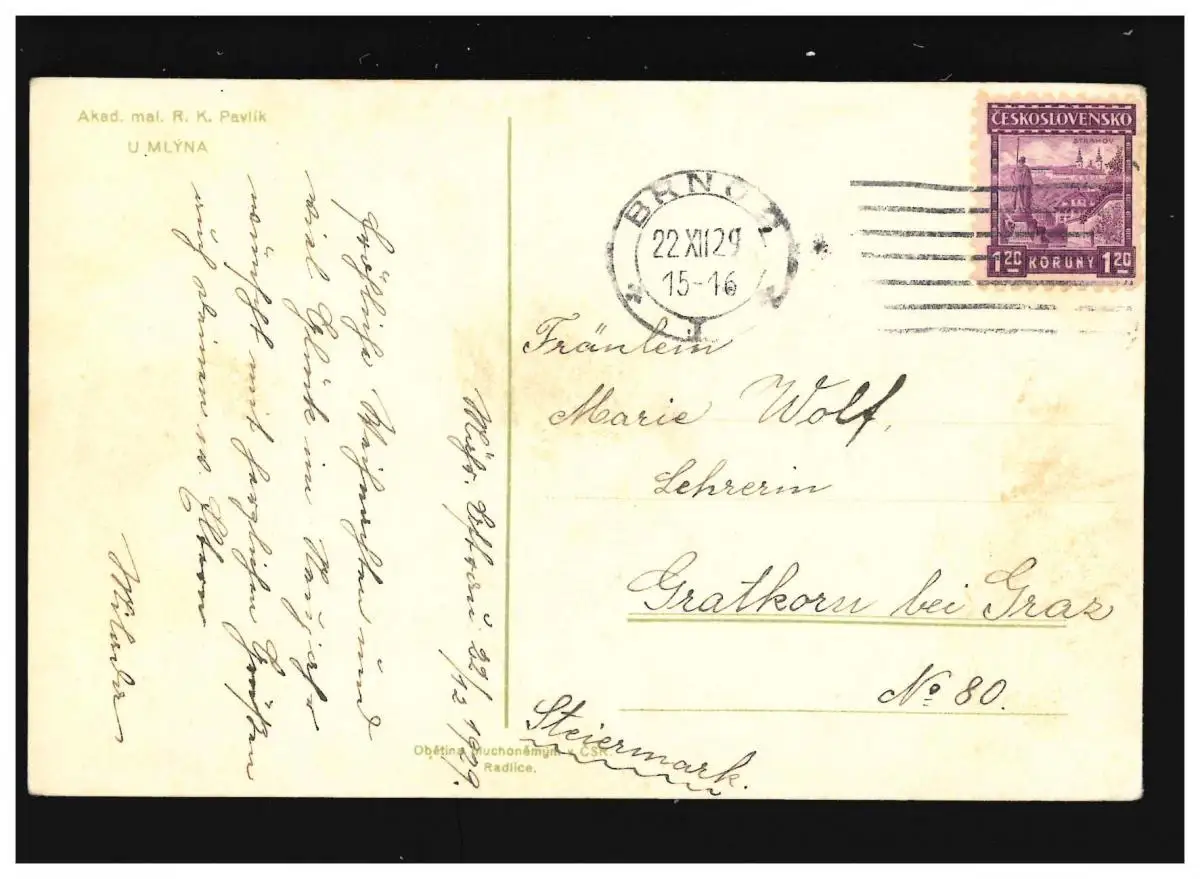 Akad. mal. R. K. Pavlík
U MLÝNA
Fröhliche Weihnachten und
viel Glück im Neujahr
wünscht mit herzlichen Grüßen
auch deinen w. Eltern
22/12 1929.
Obětina hluchoněmým v ČSR.
Radlice.
ČESKOSLOVENSKO
STRAHOV
1.20 KORUNY 1.20
BRNO 2
22 XII 29
15-16
1
Fräulein
Marie Wolf,
Lehrerin
Gratkorn bei Graz
No 80.
Steiermark.